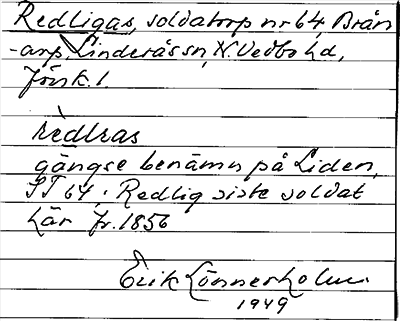 Redligas, soldattorp nr 64, Brån
-arp, Linderås sn, N. Vedbo hd,
Jönk. l.
rèdlras
gängse benämn på Liden,
ST 64. Redlig siste soldat
här fr. 1856
Erik Lönnerholm
1949